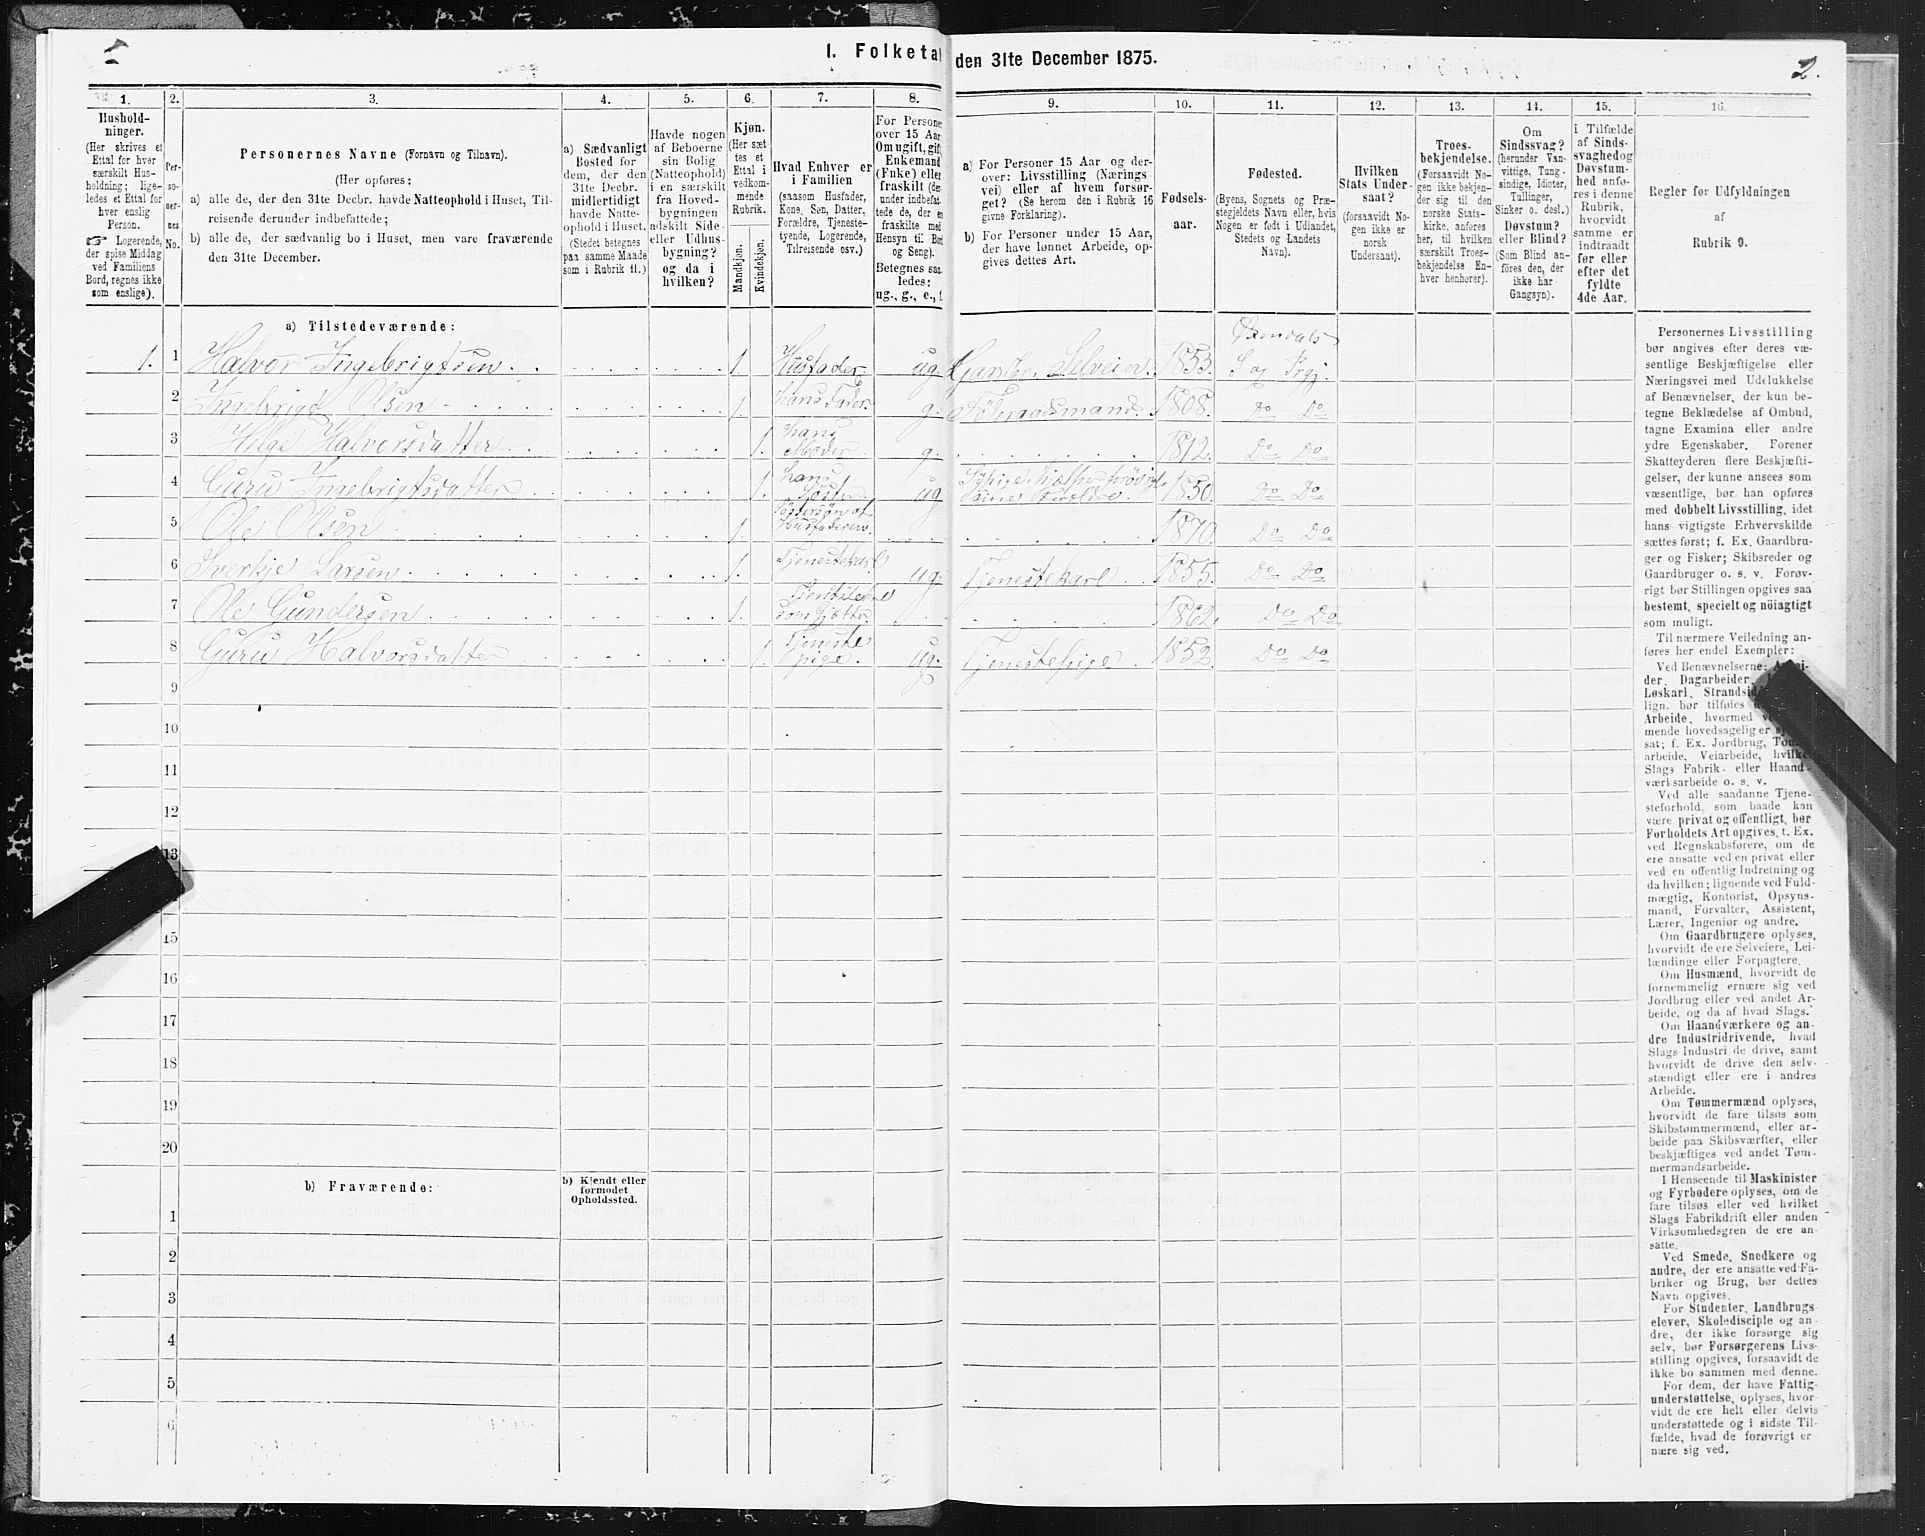 I. Folketal
den 31te December 1875.
2.
1.
2.
3.
4.
5.
6.
7.
8.
9.
10.
11.
12.
13.
14.
15.
16.
Hushold-
ninger.
(Her skrives et
Ettal for hver
særskilt Hus-
holdning; lige-
ledes et Ettal for
hver enslig
Person.
☞ Logerende,
der spise Middag
ved Familiens
Bord, regnes ikke
som enslige).
Per-
so-
ner-
nes
No.
Personernes Navne (Fornavn og Tilnavn).
(Her opføres:
a) alle de, der den 31te Decbr. havde Natteophold i Huset, Til-
reisende derunder indbefattede;
b) alle de, der sædvanlig bo i Huset, men vare fraværende
den 31te December.
a) Sædvanligt
Bosted for
dem, der den
31te Decbr.
midlertidigt
havde Natte-
ophold i Huset.
(Stedet betegnes
paa samme Maade
som i Rubrik 11.)
Havde nogen
af Beboerne
sin Bolig
(Natteophold)
i en særskilt
fra Hoved-
bygningen
adskilt Side-
eller Udhus-
bygning?
og da i
hvilken?
Kjøn.
(Her sæt-
tes et
Ettal i
vedkom-
mende
Rubrik.
Mandkjøn.
Kvindekjøn.
Hvad Enhver er
i Familien
(saasom Husfader,
Kone, Søn, Datter,
Forældre, Tjeneste-
tyende, Logerende,
Tilreisende osv.)
For Persone
over 15 Aar
Om ugift, gift
Enkemand
(Enke) eller
fraskilt (der-
under indbefat-
tede de, der er
fraskilte med
Hensyn til Bo
og Seng).
Betegnes saa-
ledes:
ug., g., e., f.
a) For Personer 15 Aar og der-
over: Livsstilling (Nærings
vei) eller af hvem forsør-
get? (Se herom den i Rubrik 16
givne Forklaring).
b) For Personer under 15 Aar,
der have lønnet Arbeide, op-
gives dettes Art.
Fødsels-
aar.
Fødested.
(Byens, Sognets og Præ-
stegjeldets Navn eller, hvis
Nogen er født i Udlandet,
Stedets og Landets
Navn).
Hvilken
Stats Under-
saat?
(forsaavidt No-
gen ikke er
norsk
Undersaat).
Troes-
bekjendelse.
(Forsaavidt No-
gen ikke bekjen-
der sig til den
norske Stats-
kirke, anføres
her, til hvilken
særskilt Troes-
bekjendelse En-
hver henhører).
Om
Sindssvag?
(herunder Van-
vittige, Tung-
sindige, Idioter,
Tullinger,
Sinker o. desl.)
Døvstum?
eller Blind?
(Som Blind an-
føres den, der
ikke har
Gangsyn).
I Tilfælde
af Sinds-
svaghedog
Døvstum-
hed anfø-
res i denne
Rubrik,
hvorvidt
samme er
indtraadt
før eller
efter det
fyldte
4de Aar.
Regler før Udfyldningen
af
Rubrik 9.
a) Tilstedeværende:
1. 1 Halvor Ingebrigtsen 1. Husfader ug. Gaardbr. Selveier 1853. Øxendals S og Prgj.
2 Ingebrigt Olsen 1. hans Fader g. Føderaadsmand 1808. Do Do
3 Helge Halvorsdatter 1. hans Moder g. 1812. Do Do
4 Guru Ingebrigtsdatter 1. hans Søster ug 1850. Do Do
5 Ole Olsen 1. Søstersøn af Husfaderen 1870. Do Do
6 Sverkje Larsen 1. Tjenestekarl ug. Tjenestekarl 1855. Do Do
7 Ole Gundersen 1. som Gjætter 1862. Do Do
8 Guru Halvorsdatter 1. Tjeneste pige. ug. Tjenestepige 1852 Do Do
9
10
11
12
13
15
16
17
18
19
20
b) Fraværende:
b) Kjendt eller
formodet
Opholdssted.
1
2
3
4
5
6
Personernes Livsstilling
bør angives efter deres væ-
sentlige Beskjæftigelse eller
Næringsvei med Udelukkelse
af Benævnelser, der kun be-
tegne Beklædelse af Ombud,
tagne Examina eller andre
ydre Egenskaber. Forener
Skatteyderen flere Beskjæfti-
gelser, der kunne ansees som
væsentlige, bør han opføres
med dobbelt Livsstilling, idet
hans vigtigste Erhvervskilde
sættes først; f. Ex. Gaardbru-
ger og Fisker; Skibsreder og
Gaardbruger o. s. v. Forøv-
rigt bør Stillingen opgives saa
bestemt, specielt og nöiagtigt
som muligt.
Til nærmere Veiledning an-
føres her endel Exempler:
Ved Benævnelserne:
der, Dagarbeider,
Løskarl, Strandsid
lign. bør tilføies
Arbeide, hvormed
mende hovedsagelig er
sat; f. Ex. Jordbrug,
arbeide, Veiarbeide,
Slags Fabrik- eller Haand-
værksarbeide o. s. v.
Ved alle saadanne Tjene-
steforhold, som baade kan
være privat og offentligt, bør
Forholdets Art opgives, t. Ex.
ved Regnskabsførere, om de
ere ansatte ved en privat eller
ved en offentlig Indretning og
da hvilken; lignende ved Fuld-
mægtig, Kontorist, Opsyns-
mand, Forvalter, Assistent,
Lærer, Ingeniør og andre.
Om Gaardbrugere oplyses,
hvorvidt de ere Selveiere, Lei-
lændinge eller Forpagtere.
Om Husmænd, hvorvidt de
fornemmelig ernære sig ved
Jordbrug eller ved andet Ar-
beide, og da af hvad Slags.
Om Haandværkere og an-
dre Industridrivende, hvad
Slags Industri de drive, samt
hvorvidt de drive den selv-
stændigt eller ere i andres
Arbeide.
Om Tømmermænd oplyses,
hvorvidt de fare tilsøs som
Skibstømmermænd, eller ar-
beide paa Skibsværfter, eller
beskjæftiges ved andet Tøm-
mermandsarbeide.
I Henseende til Maskinister
og Fyrbødere oplyses, om de
fare tilsøs eller ved hvilket
Slags Fabrikdrift eller anden
Virksomhedsgren de ere an-
satte.
Ved Smede, Snedkere og
andre, der ere ansatte ved Fa-
briker og Brug, bør dettes
Navn opgives.
For Studenter, Landbrugs-
elever, Skoledisciple og an-
dre, der ikke forsørge sig
selv, bør Forsørgerens Livs-
stilling opgives, forsaavidt de
ikke bo sammen med denne.
For dem, der have Fattig-
understøttelse, oplyses, hvor-
vidt de ere helt eller delvis
understøttede og i sidste Til-
fælde, hvad de forøvrigt er
nære sig ved.